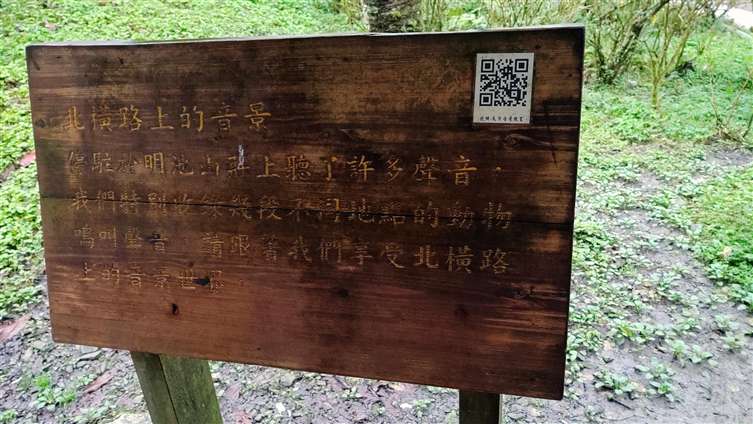 北橫路上的音景
駐於明池山莊上聽了許多聲音，
我們特別收錄幾段不同地點的動物
鳴叫聲音，請跟著我們享受北橫路
上的音景世界。